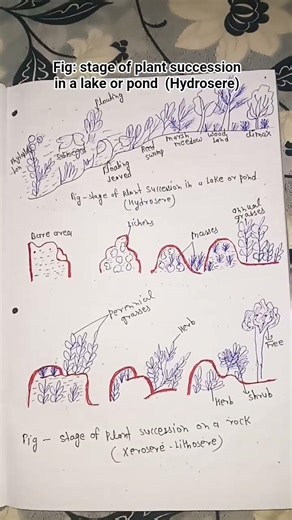 Fig: stage of plant succession
in a lake or pond (Hydrosere)
floating
Phytoplank
ton
Submerged
floating
leaved
Reed
swamp
marsh
meedow
wood
land
climax
Fig - stage of Plant Succession in a Lake or pond
(Hydrosere)
Bare area
lichens
masses
annual
grasses
perennial
grasses
Herb
Tree
Herb
Shrub
Fig - stage of Plant succession on a rock
(Xerosere - Lithosere)